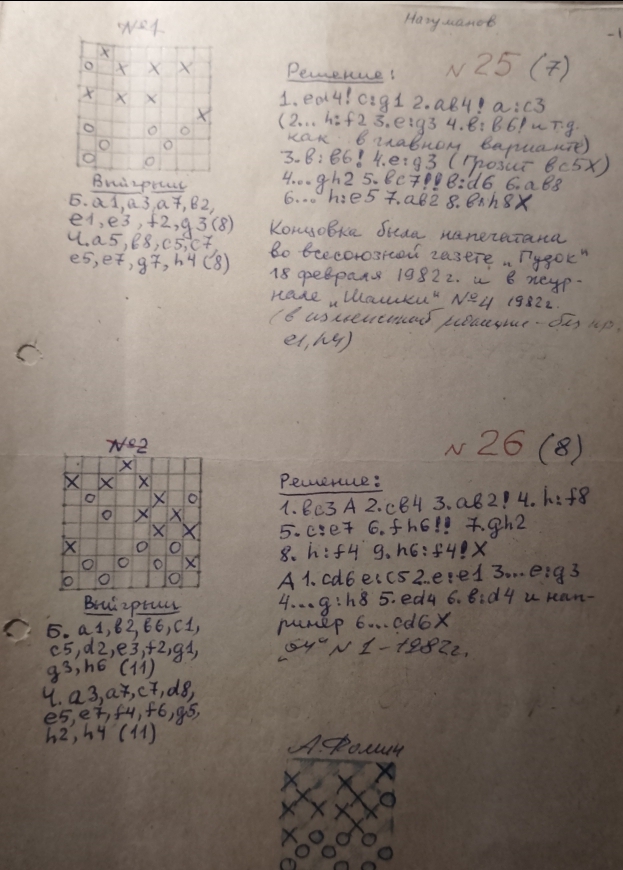 Нагуманов
-1
№1
№ 25 (7)
Решение:
1. ed4! c:g1 2. ab4! a:c3
(2... h:f2 3. e:g3 4. b:b6! и т.д.
как в главном варианте)
3. b:b6! 4. e:g3 (грозит bc5X)
4... gh2 5. bc7!! b:d6 6. ab8
6... h:e5 7. ab2 8. b:h8X
Выигрыш
Б. a1, a3, a7, b2,
e1, e3, f2, g3 (8)
Ч. a5, b8, c5, c7,
e5, e7, g7, h4 (8)
Концовка была напечатана
во всесоюзной газете „Гудок"
18 февраля 1982 г. и в жур-
нале „Шашки" №4 1982г.
(в
e1, h4)
№2
№ 26 (8)
Решение:
1. bc3 A 2. cb4 3. ab2! 4. h:f8
5. c:e7 6. fh6!! 7. gh2
8. h:f4 9. h6:f4!X
A 1. cd6 e:c5 2. e:e1 3... e:g3
4... g:h8 5. ed4 6. b:d4 и нап-
ример 6... cd6X
„64" №1-1982г.
Выигрыш
Б. a1, b2, b6, c1,
c5, d2, e3, f2, g1,
g3, h6 (11)
Ч. a3, a7, c7, d8,
e5, e7, f4, f6, g5,
h2, h4 (11)
А. Фомин